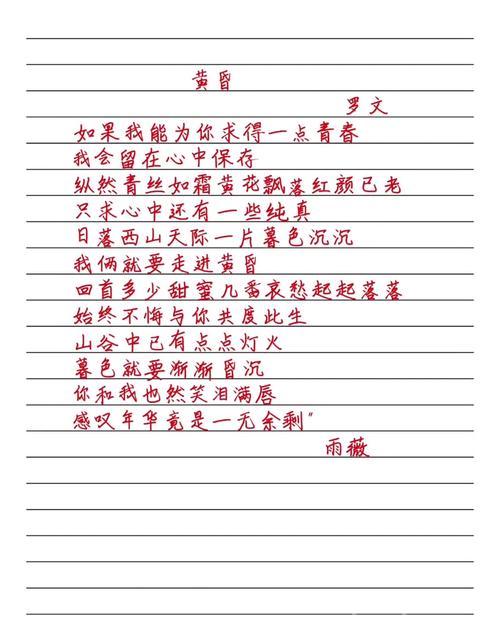 黄昏
罗文
如果我能为你求得一点青春
我会留在心中保存
纵然青丝如霜黄花飘落红颜已老
只求心中还有一些纯真
日落西山天际一片暮色沉沉
我俩就要走进黄昏
回首多少甜蜜几番哀愁起起落落
始终不悔与你共度此生
山谷中已有点点灯火
暮色就要渐渐昏沉
你和我也然笑泪满唇
感叹年华竟是一无余剩"
雨薇